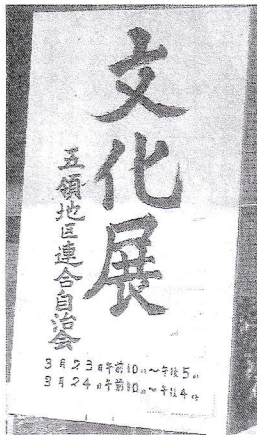 文化展
五領地区連合自治会
3月23日午前10時〜午後5時
3月24日午前10時〜午後4時